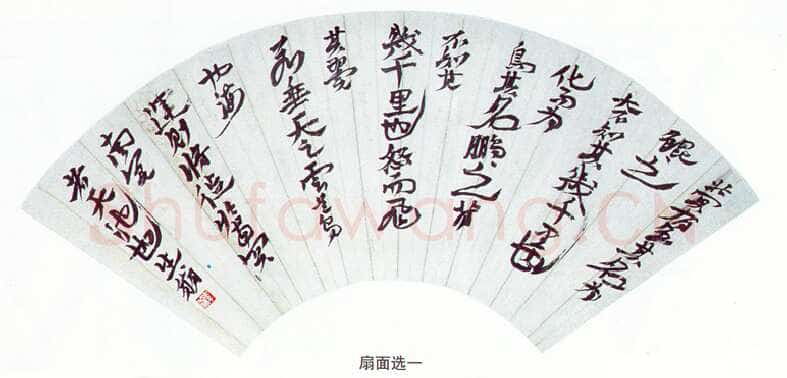 北冥有魚其名為
鯤之
大不知其幾千里也
化而為
鳥其名鵬〻之背
不知其
幾千里也怒而飛
其翼
若垂天之雲是鳥
也海
運則將徙於南冥
南冥
者天池也生翁
Shufawang.CN
扇面选一